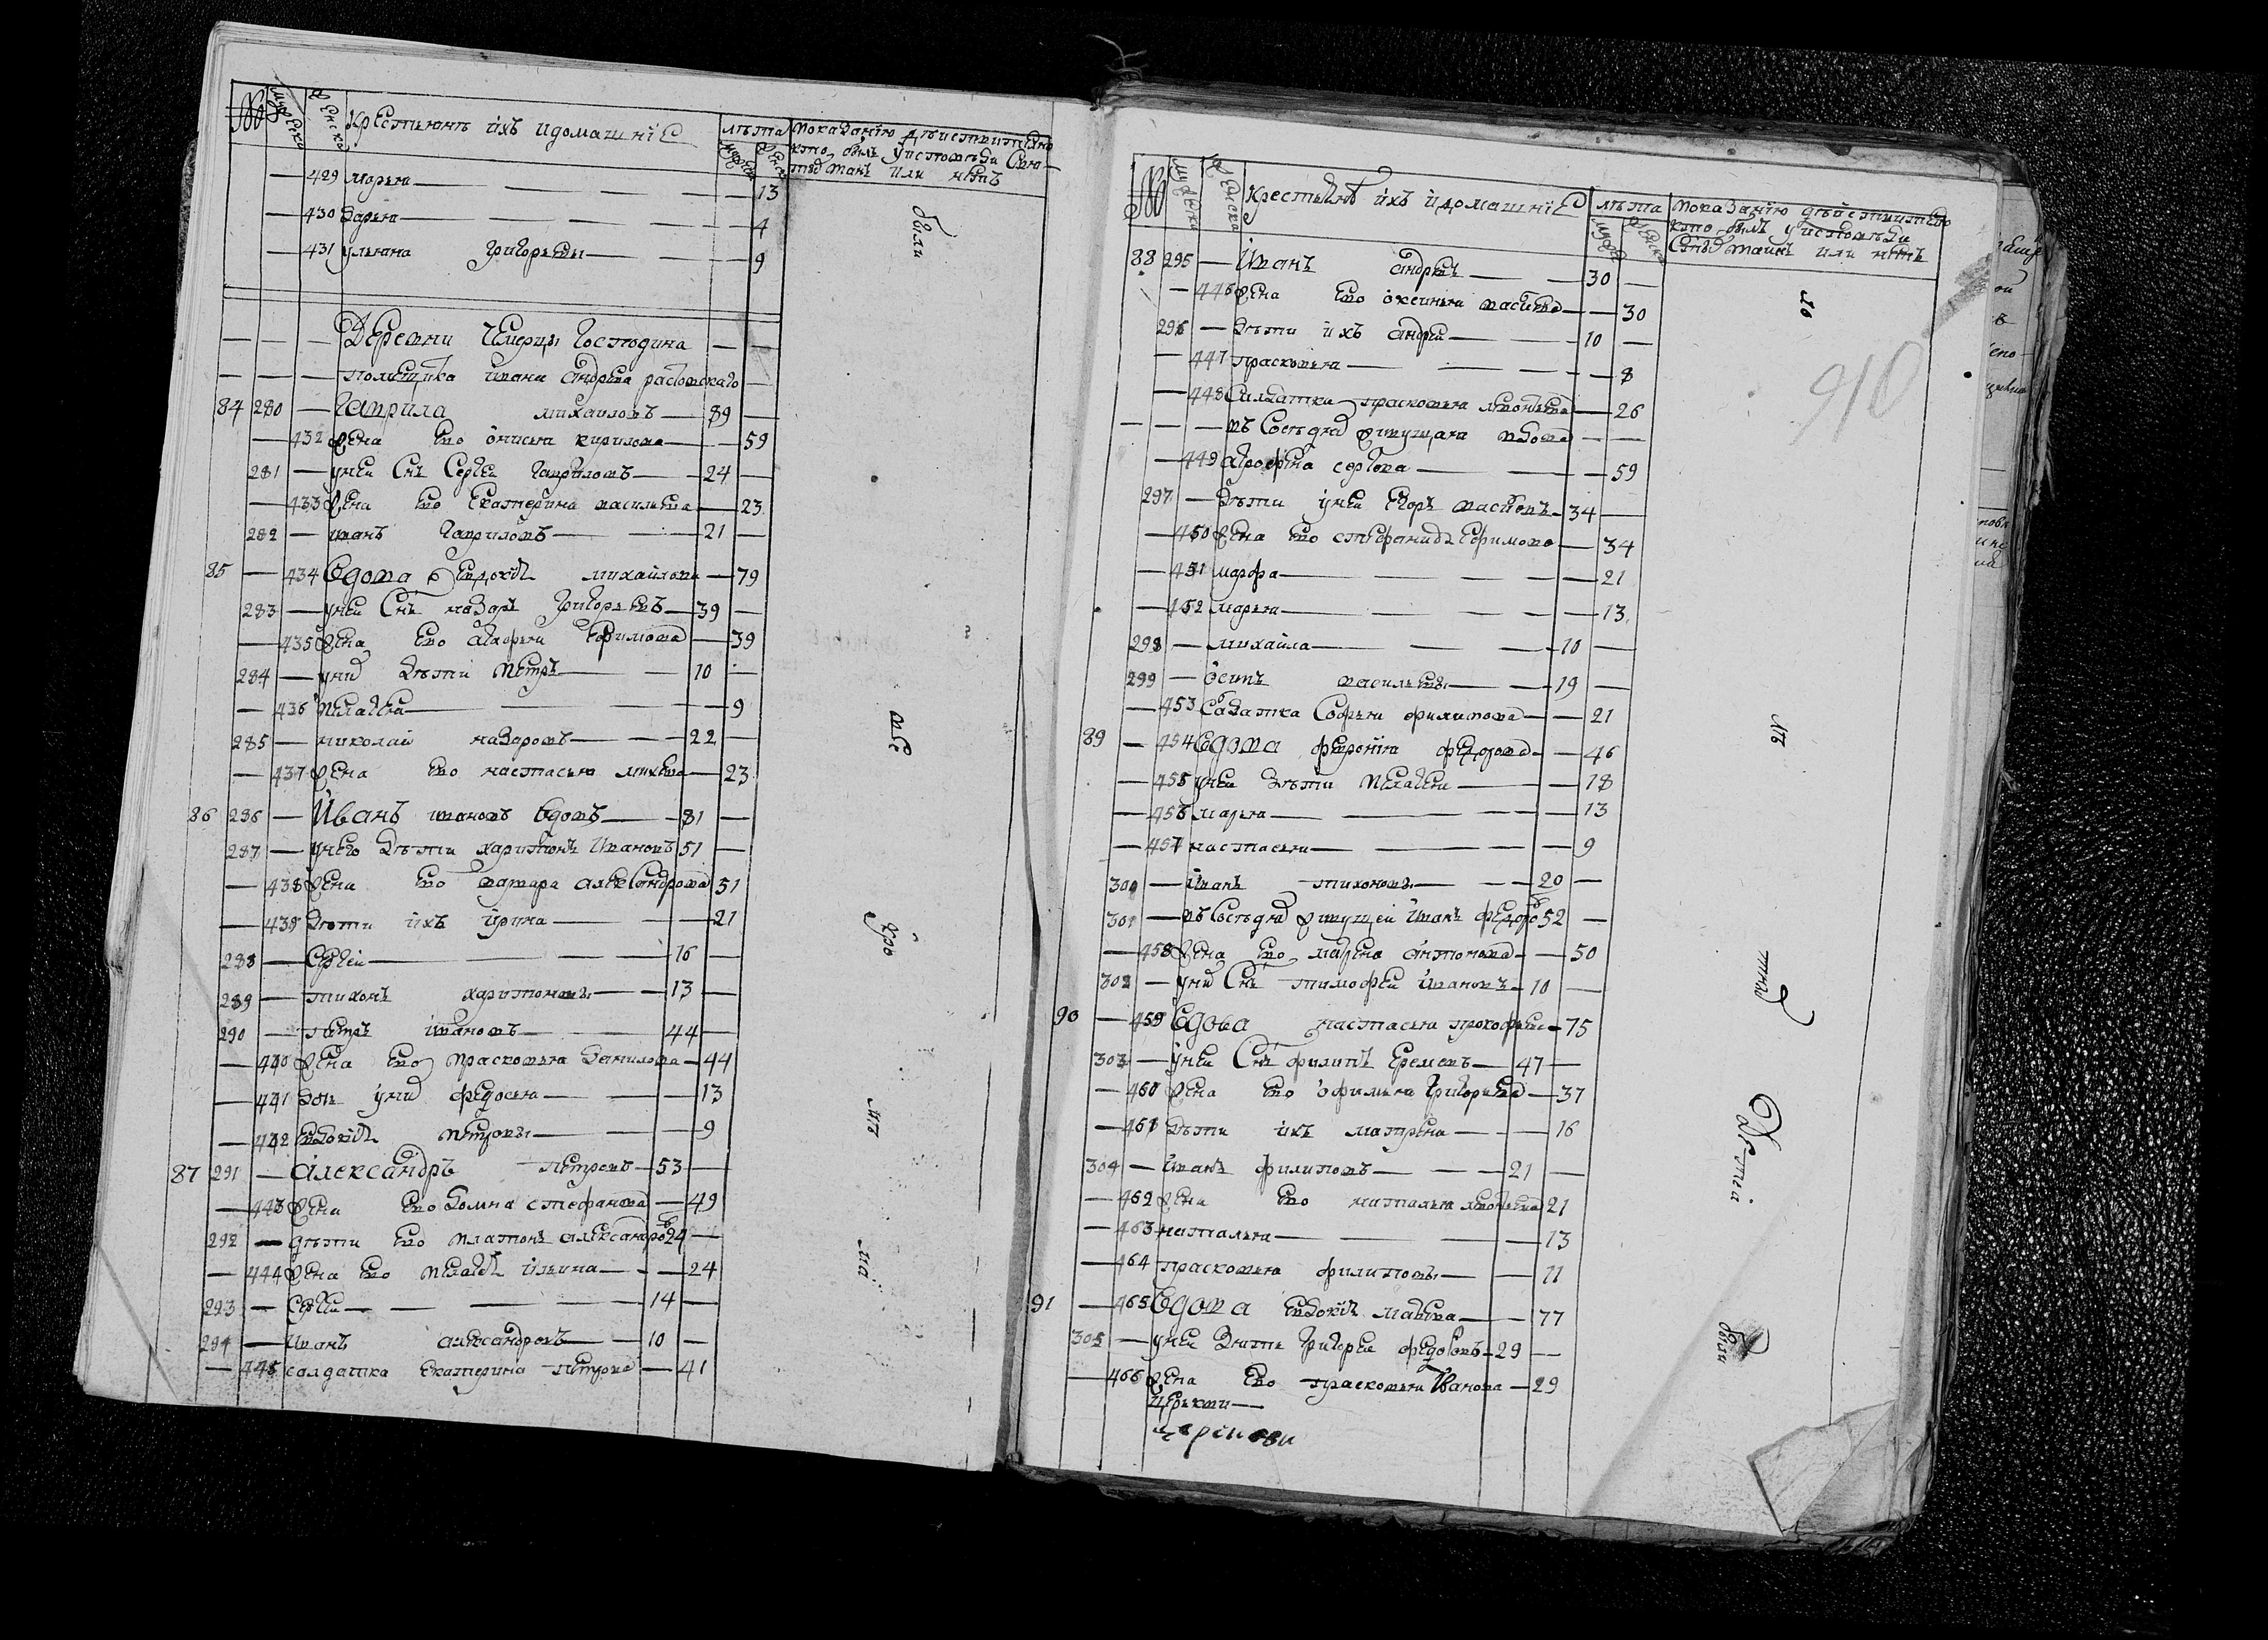 № мужеска женска Крестьянъ ихъ идомашнїе лѣта Показанїю дѣйствително
кто былъ уисповѣди Свя-
тыхъ таинъ или нѣтъ
— 429 марья — 13
— 430 Дарья — 4
— 431 ульяна Григорьевы — 9
были
— — — Деревни Чмерцы Господина — —
— — — помещика ивана андрѣева ростовскаго —
84 280 — Гаврила михаиловъ — 89 —
— 432 жена ево онисья кирилова — 59
281 — унеи Снъ Сергеи Гавриловъ — 24 —
— 433 жена ево Екатерина васильева — 23
282 — иванъ Гавриловъ — 21 —
85 — 434 Вдова Евдокїя михайлова — 79
283 — унеи Снъ назаръ Григорьевъ — 39 —
— 435 жена ево агафья Ефимова — 39
284 — унихъ дѣти Петръ — 10 —
— 436 Пелагея — 9
285 — николай назаровъ — 22 —
— 437 жена ево настасья михеева — 23
86 286 — Иванъ ивановъ вдовъ — 81 —
287 — унего дѣти харитонъ Ивановъ 51 —
— 438 жена ево варвара алеѯандрова 51
— 439 дѣти ихъ ирина — 21
288 — Сергей — 16 —
289 — тихонъ харитоновы — 13 —
290 — петръ ивановъ — 44 —
— 440 жена ево прасковья данилова — 44
— 441 дочь унихъ федосья — 13
— 442 Евдокїя петровы — 9
87 291 — александръ петровъ — 53 —
— 443 жена ево домна стефанова — 49
292 — дѣти ево платонъ александровъ 24 —
— 444 жена ево Пелагея ильина — 24
293 — Сергѣи — 14 —
294 — иванъ александровъ — 10 —
— 445 салдатка екатерина петрова — 41
№ мужеска женска крестьянъ ихъ идомашнїе лѣта показанїю дѣйствително
кто былъ уисповѣди
Святыхъ таинъ или нѣтъ
88 295 — Иванъ андрѣевъ — 30 —
— 446 жена ево оксинья васильева — 30
296 — дѣти ихъ андрей — 10 —
— 447 прасковья — 8
— 448 Салдатка прасковья леонтьева — 26
— — — въ Сосѣдяхъ живущая вдова — —
— 449 агрофена сергѣева — 59
297 — дѣти унеи Егоръ васильевъ — 34 —
— 450 жена ево стефанида Ефимова — 34
— 451 марфа — 21
— 452 марья — 13
298 — михайла — 10 —
299 — осипъ васильевы — 19 —
— 453 Салдатка Софья филипова — 21
89 — 454 Вдова феаронїя федорова — 46
— 455 унеи дѣти Пелагея — 18
— 456 марья — 13
— 457 настасья — 9
300 — Иванъ тихоновы — 20 —
301 — въ Сосѣдяхъ живущей Иванъ федоровъ 52 —
— 458 жена ево марина антонова — 50
302 — унихъ Снъ тимофей Ивановъ — 10 —
90 — 459 Вдова настасья прокофьева — 75
303 — унеи Снъ филипъ Еремевъ — 47 —
— 460 жена ево офимья Григорьева — 37
— 461 дѣти ихъ матрена — 16
304 — Иванъ филиповъ — 21 —
— 462 жена ево наталья леонтьева 21
— 463 наталья — 13
— 464 прасковья филиповы — 11
91 — 465 Вдова Евдокїя матвева — 77
305 — унеи дѣти Григорей федоровъ — 29 —
— 466 жена ево прасковья Иванова — 29
910
Детей
были